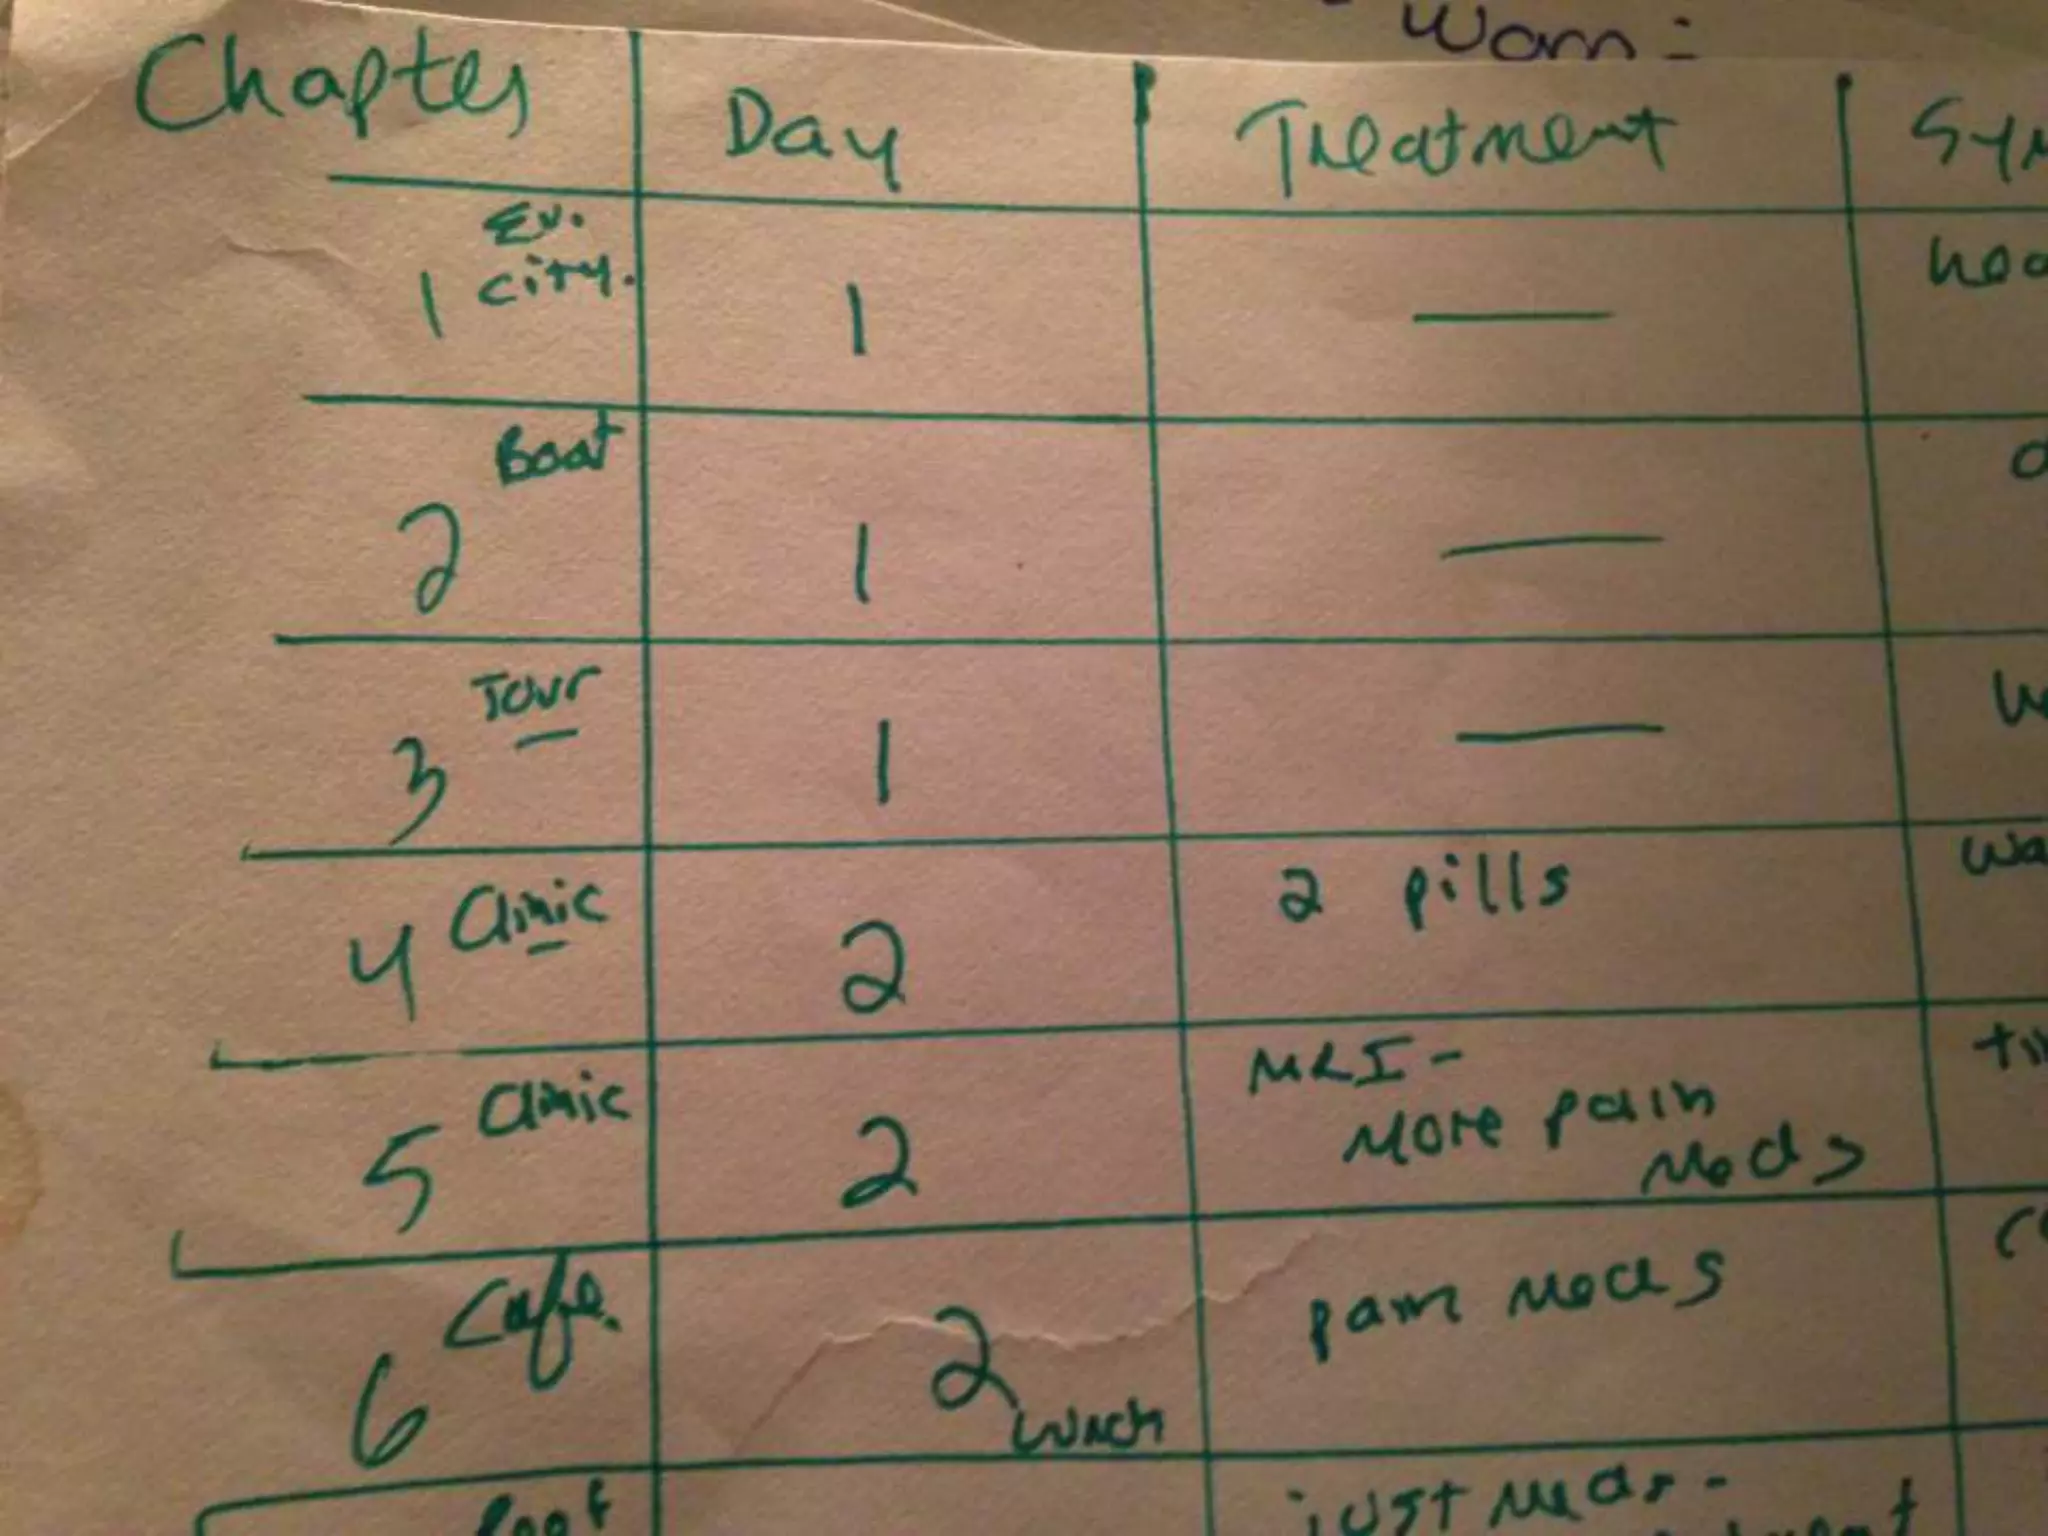 Wam:
Chapter Day Treatment Sym
Ev.
City.
1 1 — hea
Boat
2 1 —
Tour
3 1 —
4 Clinic 2 2 pills wa
5 Clinic 2 MRI -
More pain
Meds
Cafe.
6 2 Lunch pain Meds
just meds -